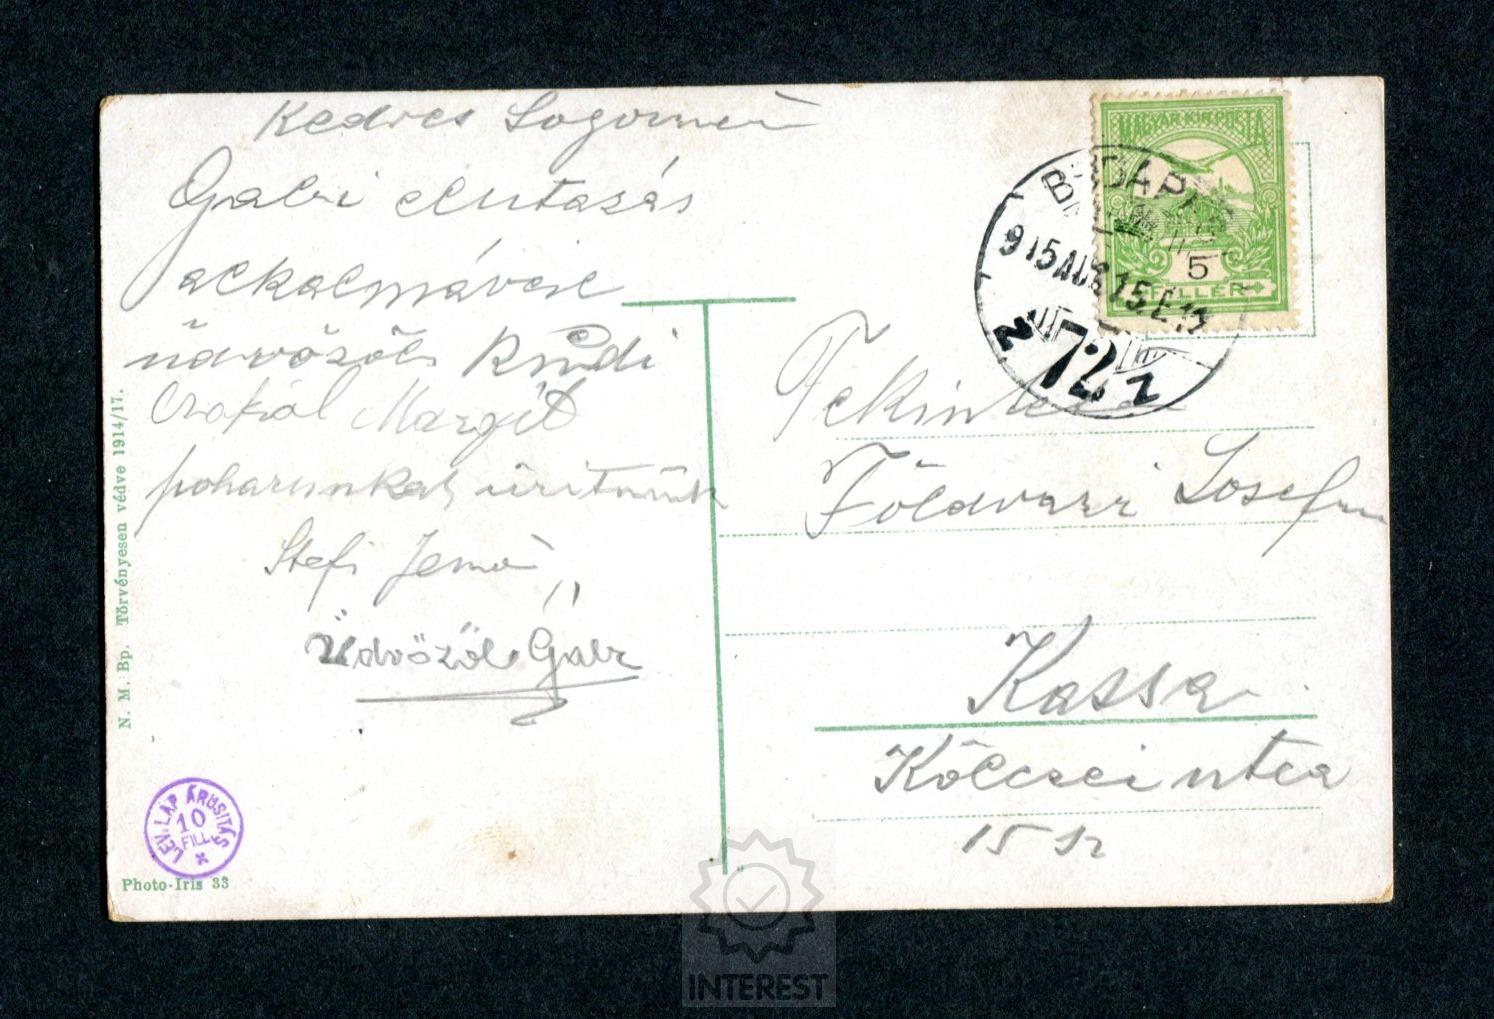 Kedves Sogornéi
Gabi elutazás
alkalmával
üdvözöl Rudi
Csokol Margit
poharunkat üritünk
Stefi Jenő
Üdvözöl Gabi
N. M. Bp. Törvényesen védve 1914/17.
LEV. LAP ÁRUSITÁS
10
FILL.
Photo-Iris 33
MAGYAR KIR. POSTA
5
FILLÉR
BUDAPEST
915 AUG 15
72
Tekintetes
Földvari Josefin
Kassa
Kölcsei utca
15 sz
INTEREST